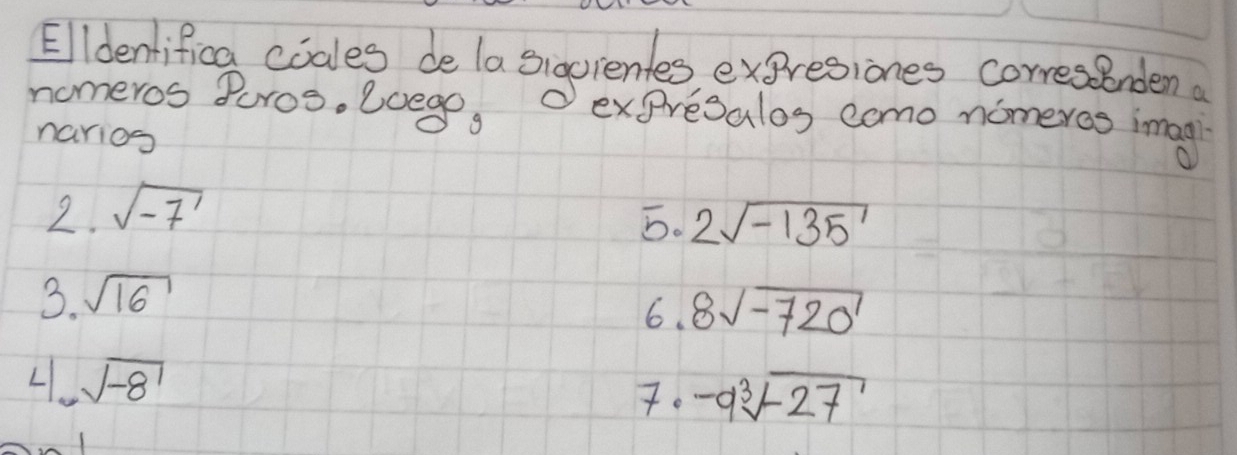 E Identifica cúales de la siguientes expresiones corresponden a
números Puros. Luego, exprésalos como números imagi-
narios
2. √-7
5. 2√-135
3. √16
6. 8√-720
4. √-8
7. -9∛-27